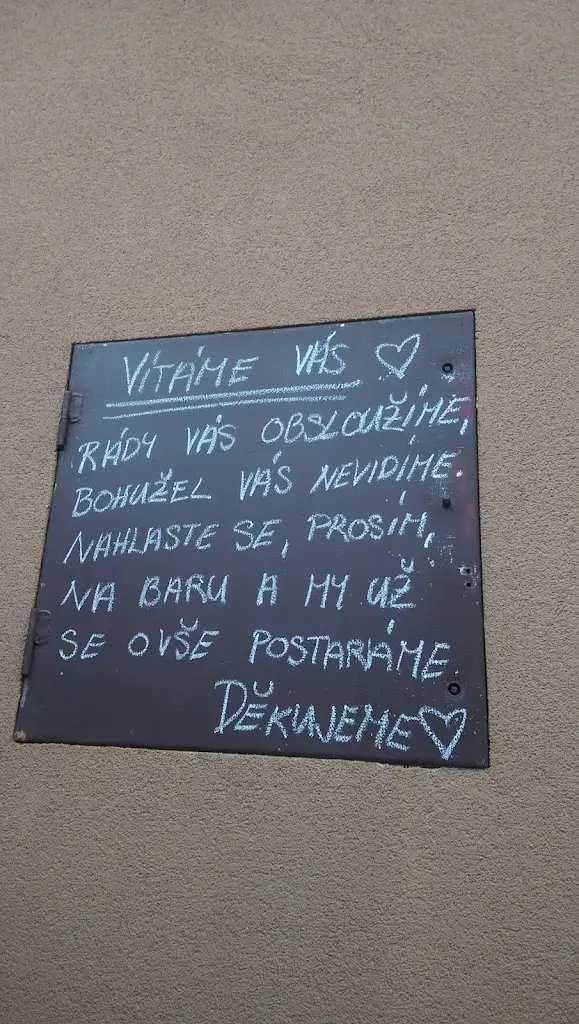 VÍTÁME VÁS ♡
RÁDY VÁS OBSLOUŽÍME,
BOHUŽEL VÁS NEVIDÍME.
NAHLASTE SE, PROSÍM,
NA BARU A MY UŽ
SE O VŠE POSTARÁME.
DĚKUJEME ♡